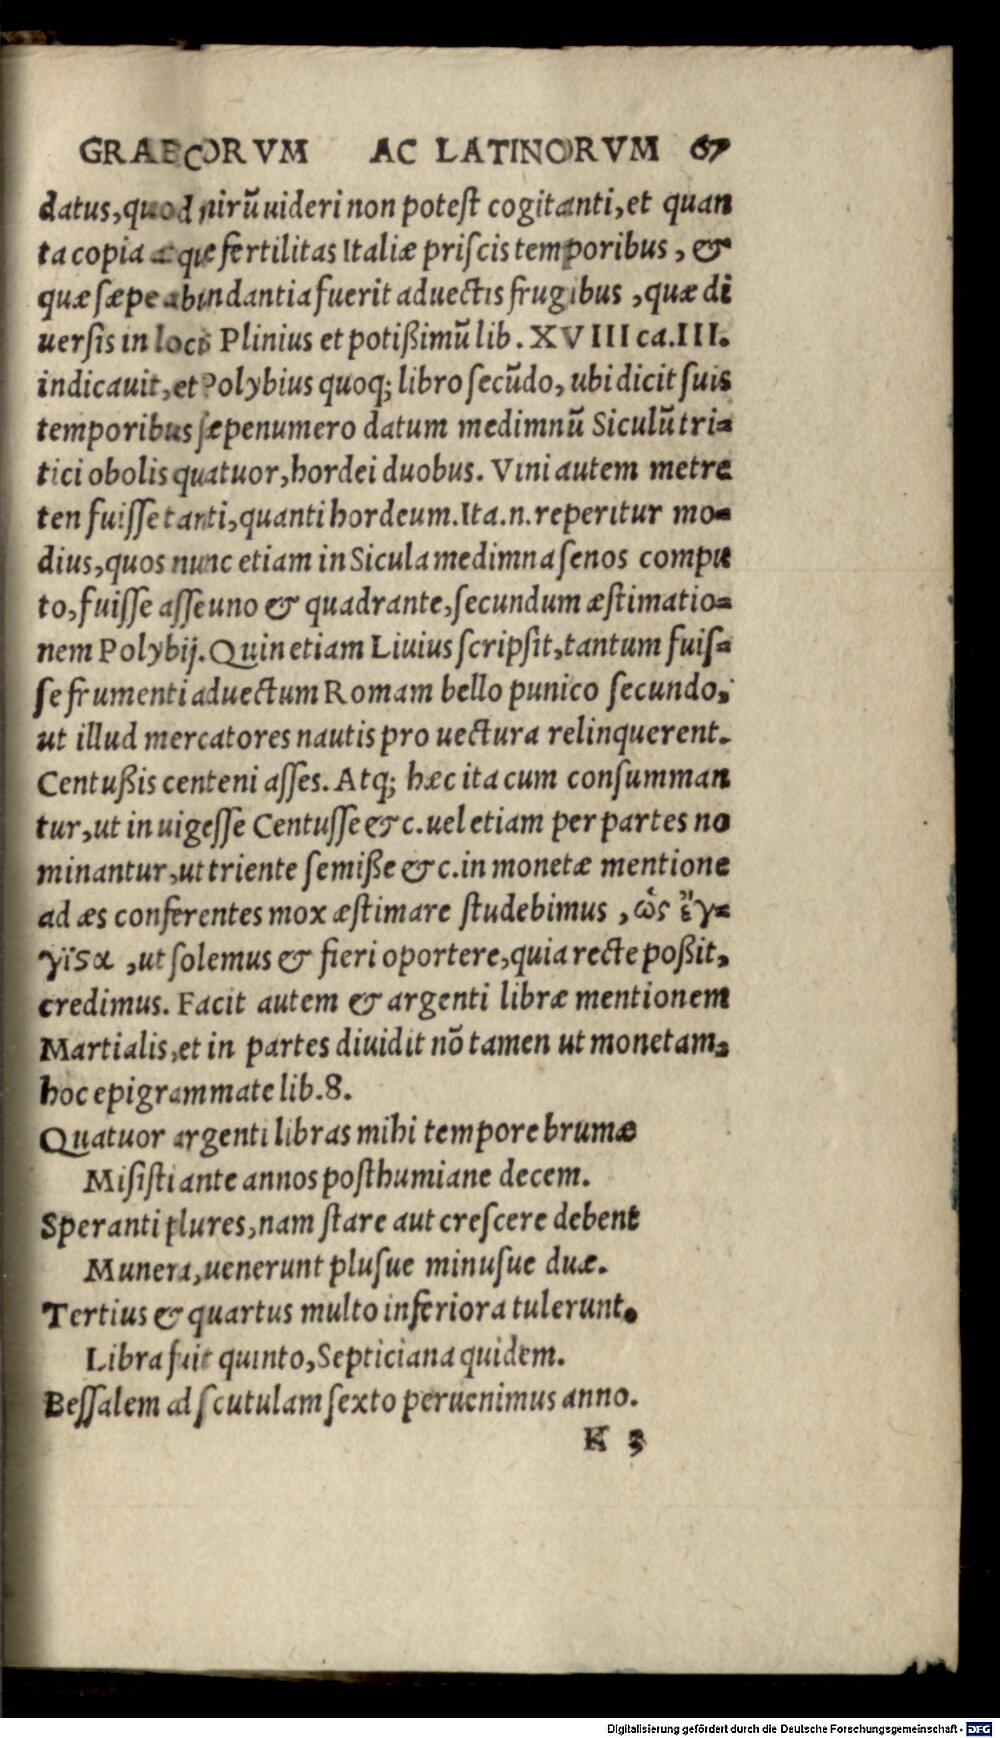 GRAECORVM AC LATINORVM 67
datus,quod mirũ uideri non poteſt cogitanti,et quan
ta copia atque fertilitas Italiæ priſcis temporibus , &
quæ ſæpe abundantia fuerit aduectis frugibus ,quæ di
uerſis in locis Plinius et potißimũ lib . XVIII ca.III.
indicauit,et Polybius quoq; libro ſecũdo, ubi dicit ſuis
temporibus ſæpenumero datum medimnũ Siculũ tri-
tici obolis quatuor,hordei duobus. Vini autem metre
ten fuiſſe tanti,quanti hordeum.Ita.n.reperitur mo-
dius,quos nunc etiam in Sicula medimna ſenos compu
to,fuiſſe aſſe uno & quadrante,ſecundum æſtimatio-
nem Polybij.Quin etiam Liuius ſcripſit,tantum fuiſ-
ſe frumenti aduectum Romam bello punico ſecundo,
ut illud mercatores nautis pro uectura relinquerent.
Centußis centeni aſſes. Atq; hæc ita cum conſumman
tur,ut in uigeſſe Centuſſe &c.uel etiam per partes no
minantur,ut triente ſemiße &c.in monetæ mentione
ad æs conferentes mox æſtimare ſtudebimus , ὡς ἔγ-
γϊςα ,ut ſolemus & fieri oportere,quia recte poßit,
credimus. Facit autem & argenti libræ mentionem
Martialis,et in partes diuidit nõ tamen ut monetam,
hoc epigrammate lib.8.
Quatuor argenti libras mihi tempore brumæ
Miſiſti ante annos poſthumiane decem.
Speranti plures,nam ſtare aut creſcere debent
Munera,uenerunt pluſue minuſue duæ.
Tertius & quartus multo inferiora tulerunt.
Libra fuit quinto,Septiciana quidem.
Beſſalem ad ſcutulam ſexto peruenimus anno.
K 3
Digitalisierung gefördert durch die Deutsche Forschungsgemeinschaft - DFG